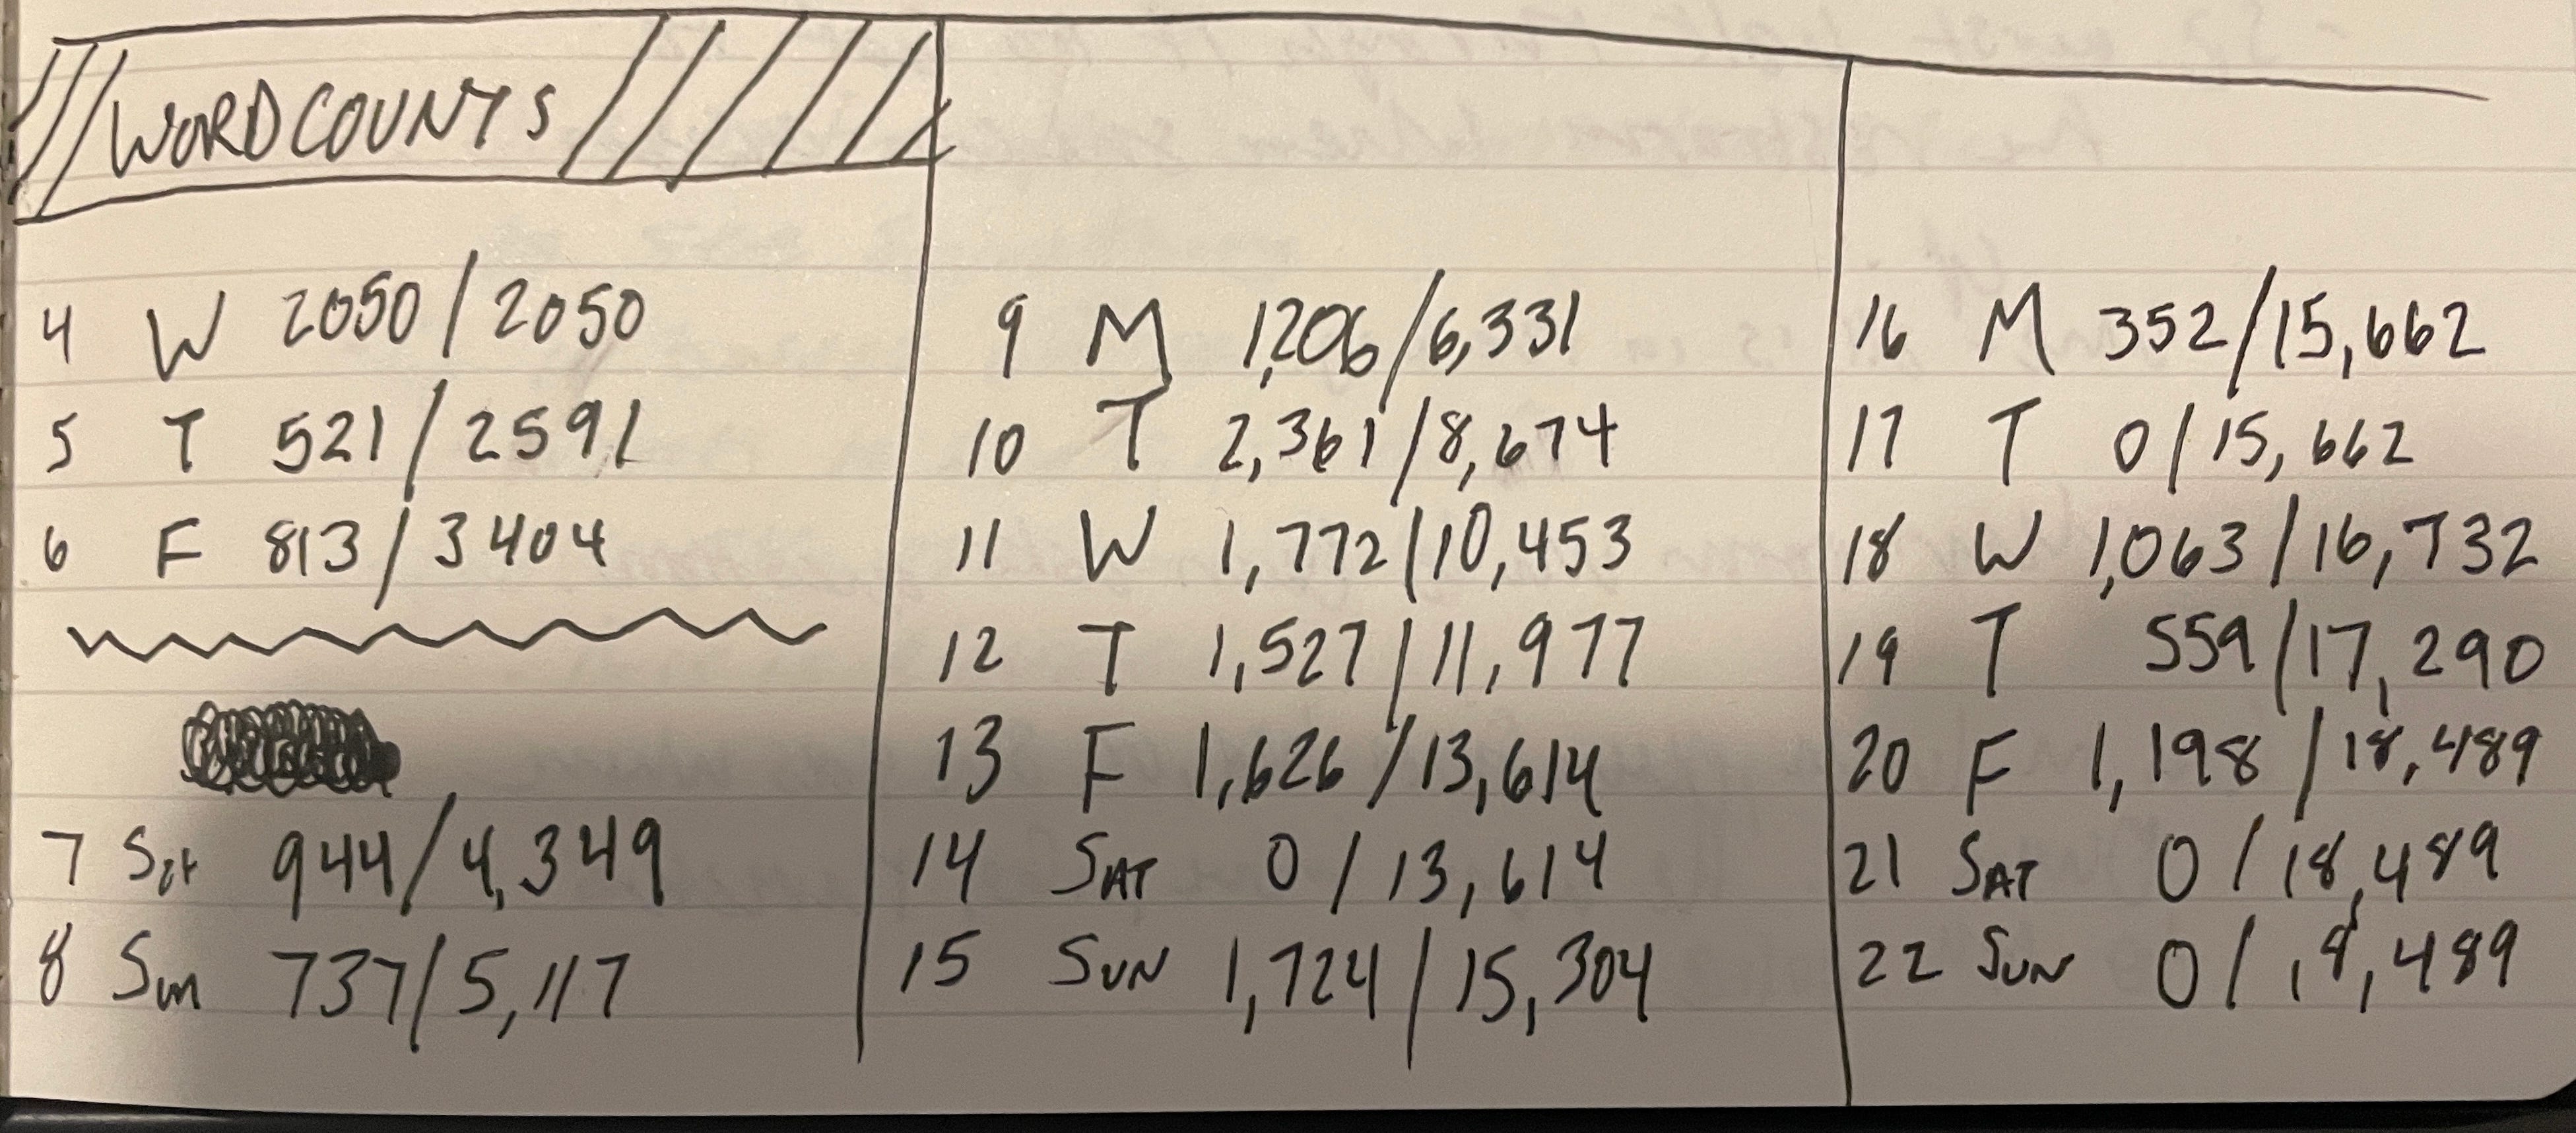 WORDCOUNTS
4 W 2050/2050
5 T 521/2591
6 F 813/3404
7 Sat 944/4,349
8 Sun 737/5,117
9 M 1,206/6,331
10 T 2,361/8,674
11 W 1,772/10,453
12 T 1,527/11,977
13 F 1,626/13,614
14 SAT 0/13,614
15 SUN 1,724/15,304
16 M 352/15,662
17 T 0/15,662
18 W 1,063/16,732
19 T 559/17,290
20 F 1,198/18,489
21 SAT 0/18,489
22 SUN 0/18,489